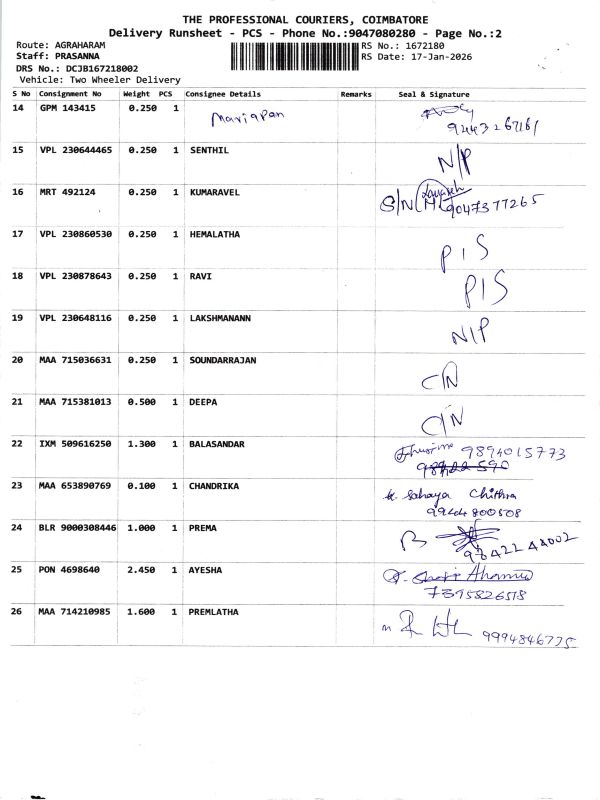 THE PROFESSIONAL COURIERS, COIMBATORE
Delivery Runsheet - PCS - Phone No.:9047080280 - Page No.:2
Route: AGRAHARAM RS No.: 1672180
Staff: PRASANNA RS Date: 17-Jan-2026
DRS No.: DCJB167218002
Vehicle: Two Wheeler Delivery
S No Consignment No Weight PCS Consignee Details Remarks Seal & Signature
14 GPM 143415 0.250 1 Mariapan
9443267161
15 VPL 230644465 0.250 1 SENTHIL N/P
16 MRT 492124 0.250 1 KUMARAVEL S/N 9047377265
17 VPL 230860530 0.250 1 HEMALATHA P I S
18 VPL 230878643 0.250 1 RAVI P I S
19 VPL 230648116 0.250 1 LAKSHMANANN N/P
20 MAA 715036631 0.250 1 SOUNDARRAJAN C/N
21 MAA 715381013 0.500 1 DEEPA C/N
22 IXM 509616250 1.300 1 BALASANDAR 9894015773
23 MAA 653890769 0.100 1 CHANDRIKA k. Sahaya Chithra
9944800508
24 BLR 9000308446 1.000 1 PREMA 98422 44002
25 PON 4698640 2.450 1 AYESHA
7395826518
26 MAA 714210985 1.600 1 PREMLATHA 9994846775